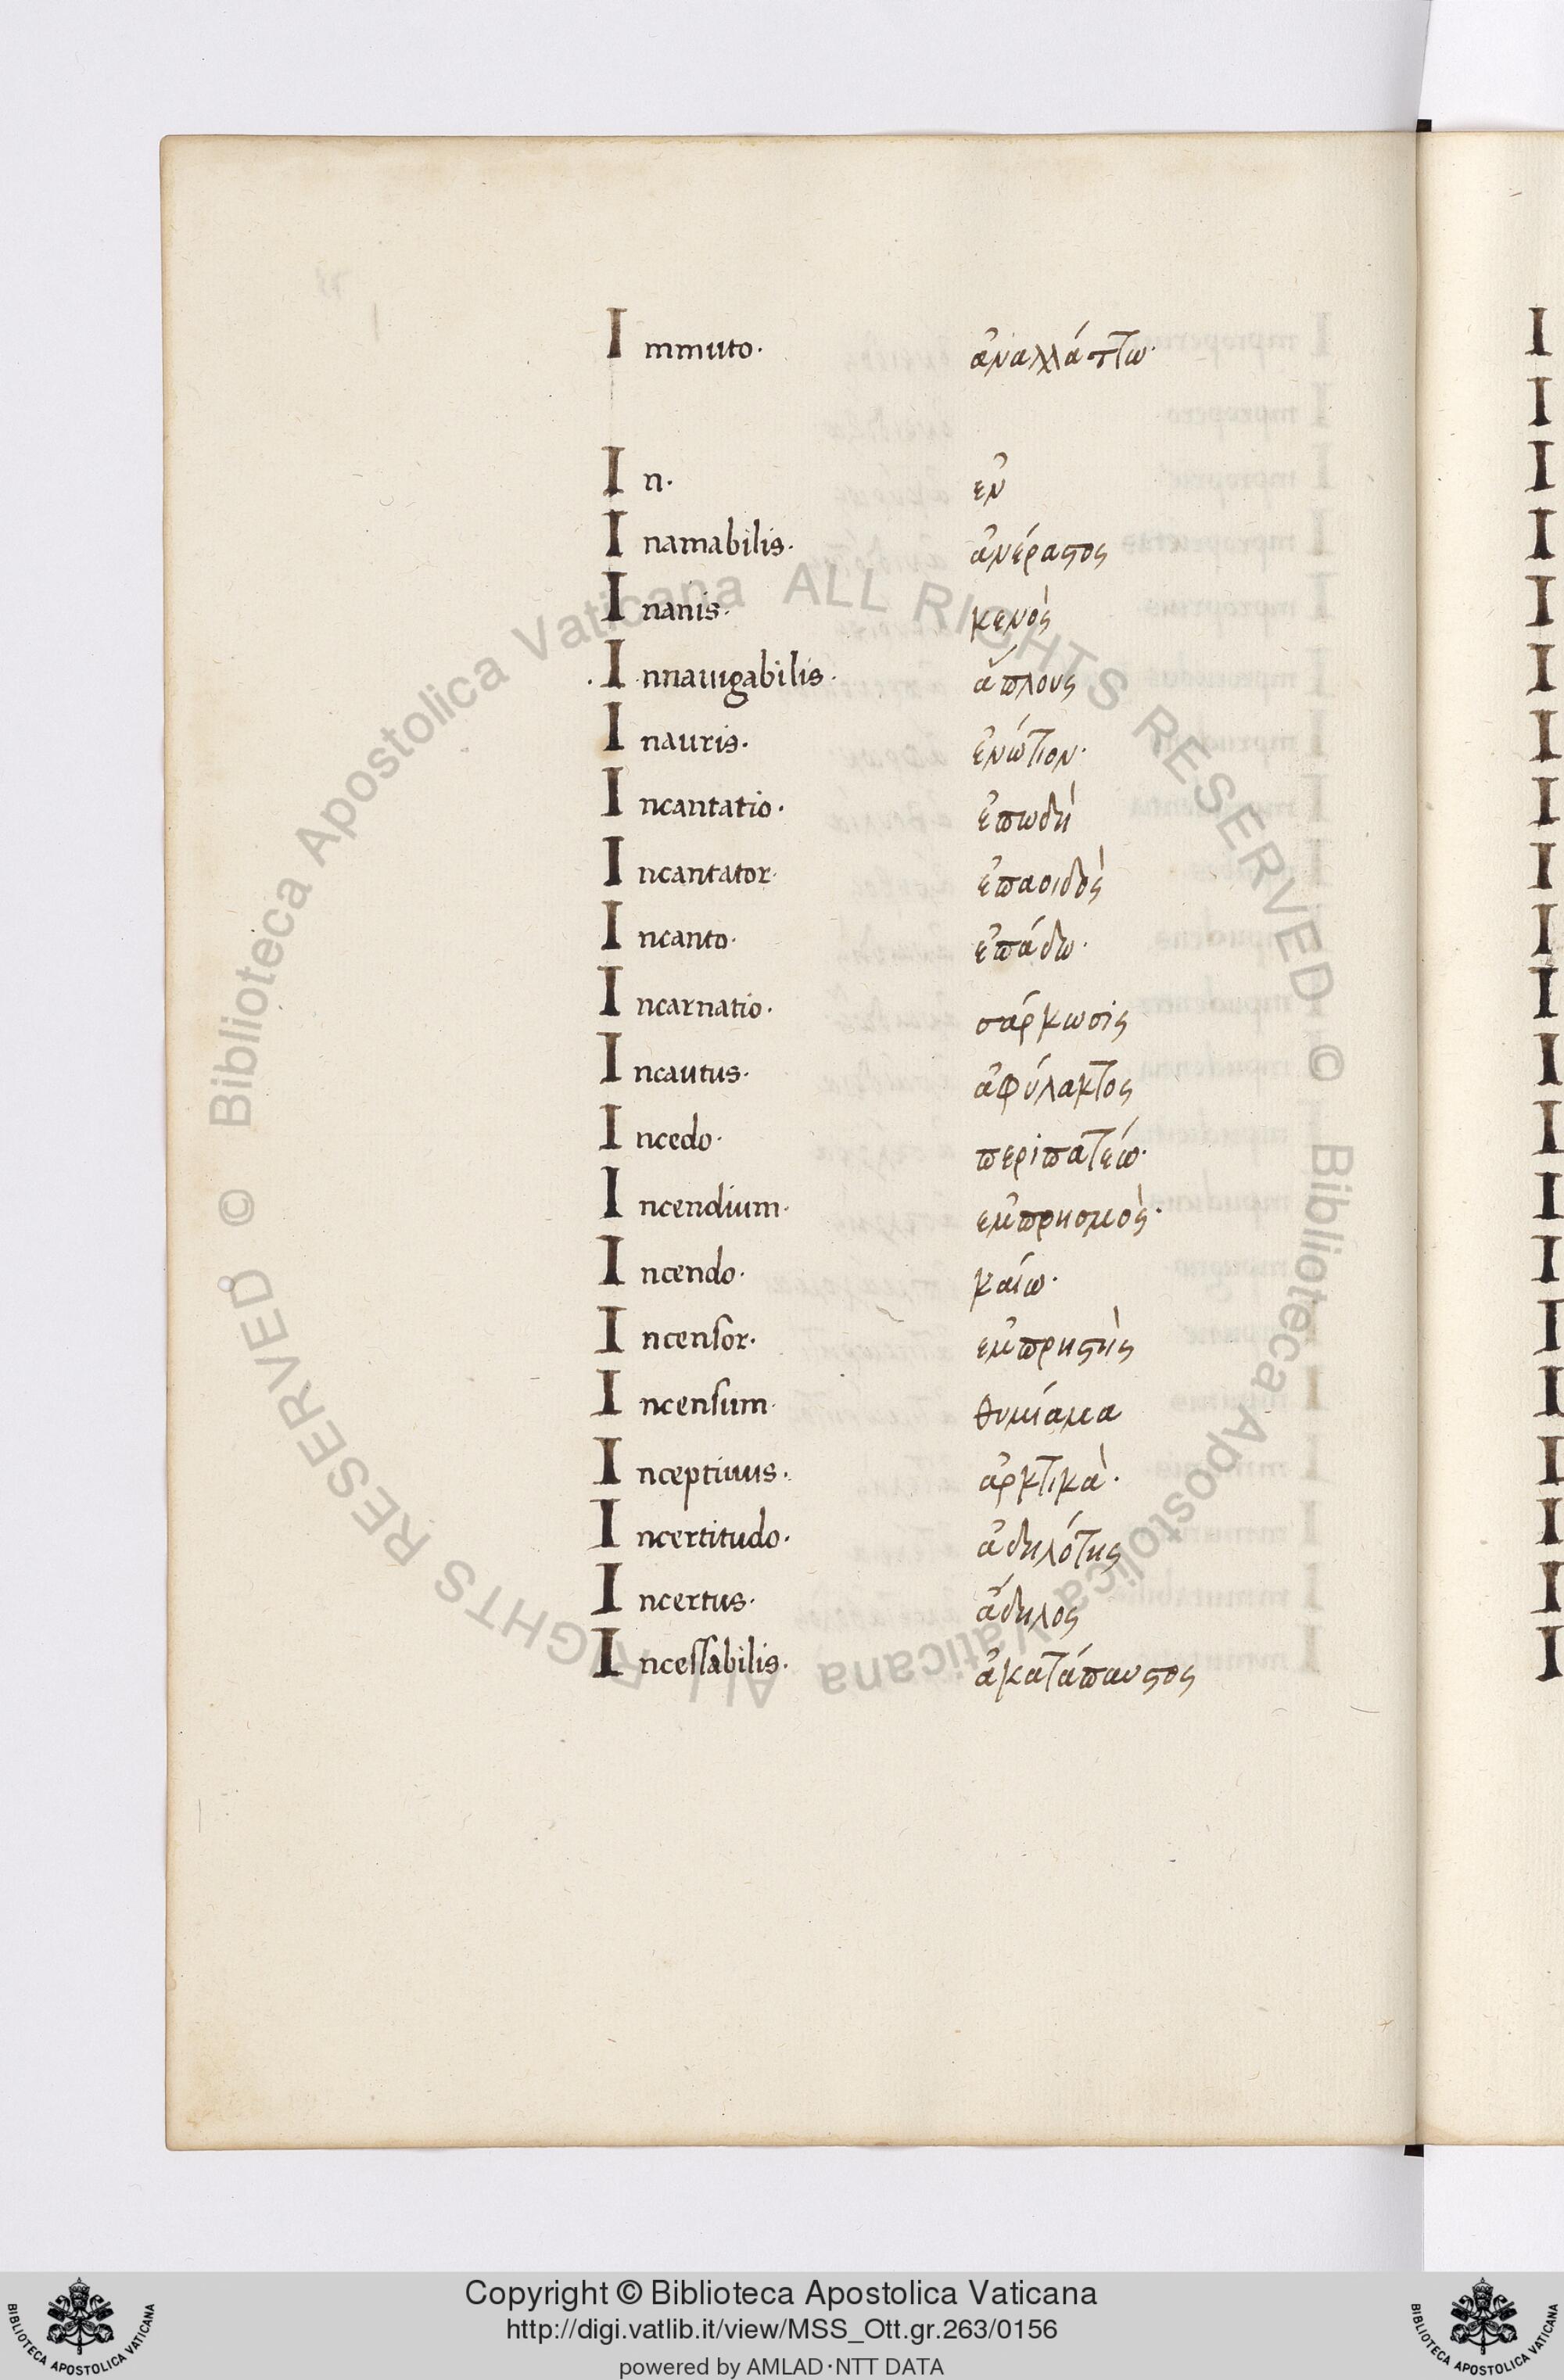 Immuto· ἀναλλάττω·
In· ἐν
Inamabilis· ἀνέραστος
Inanis· κενὸς
·Innauigabilis· ἄπλους
Inauris· ἐνώτιον·
Incantatio· ἐπωδὴ
Incantator· ἐπαοιδὸς
Incanto· ἐπάδω·
Incarnatio· σάρκωσις
Incautus· ἀφύλακτος
Incedo· περιπατέω·
Incendium· ἐμπρησμὸς·
Incendo· καίω·
Incenſor· ἐμπρηστὴς
Incenſum· θυμίαμα
Inceptiuus· ἀρκτικὰ·
Incertitudo· ἀδηλότης
Incertus· ἄδηλος
Inceſſabilis· ἀκατάπαυστος
© Biblioteca Apostolica Vaticana ALL RIGHTS RESERVED © Biblioteca Apostolica Vaticana ALL RIGHTS RESERVED
Copyright © Biblioteca Apostolica Vaticana
http://digi.vatlib.it/view/MSS_Ott.gr.263/0156
powered by AMLAD·NTT DATA
BIBLIOTECA APOSTOLICA VATICANA
BIBLIOTECA APOSTOLICA VATICANA